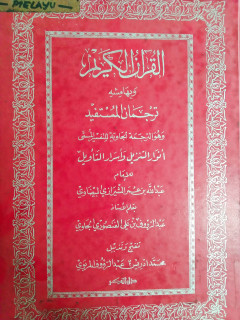 MELAYU
القرآن الكريم
وبهامشه
ترجمان المستفيد
وهو الترجمة الجاوية للتفسير المسمى
أنوار التنزيل وأسرار التأويل
للإمام
عبدالله بن عمر الشيرازي البيضاوي
عبدالرؤوف بن علي الفنصوري الجاوي
محمد إدريس عبدالرؤوف المربوي